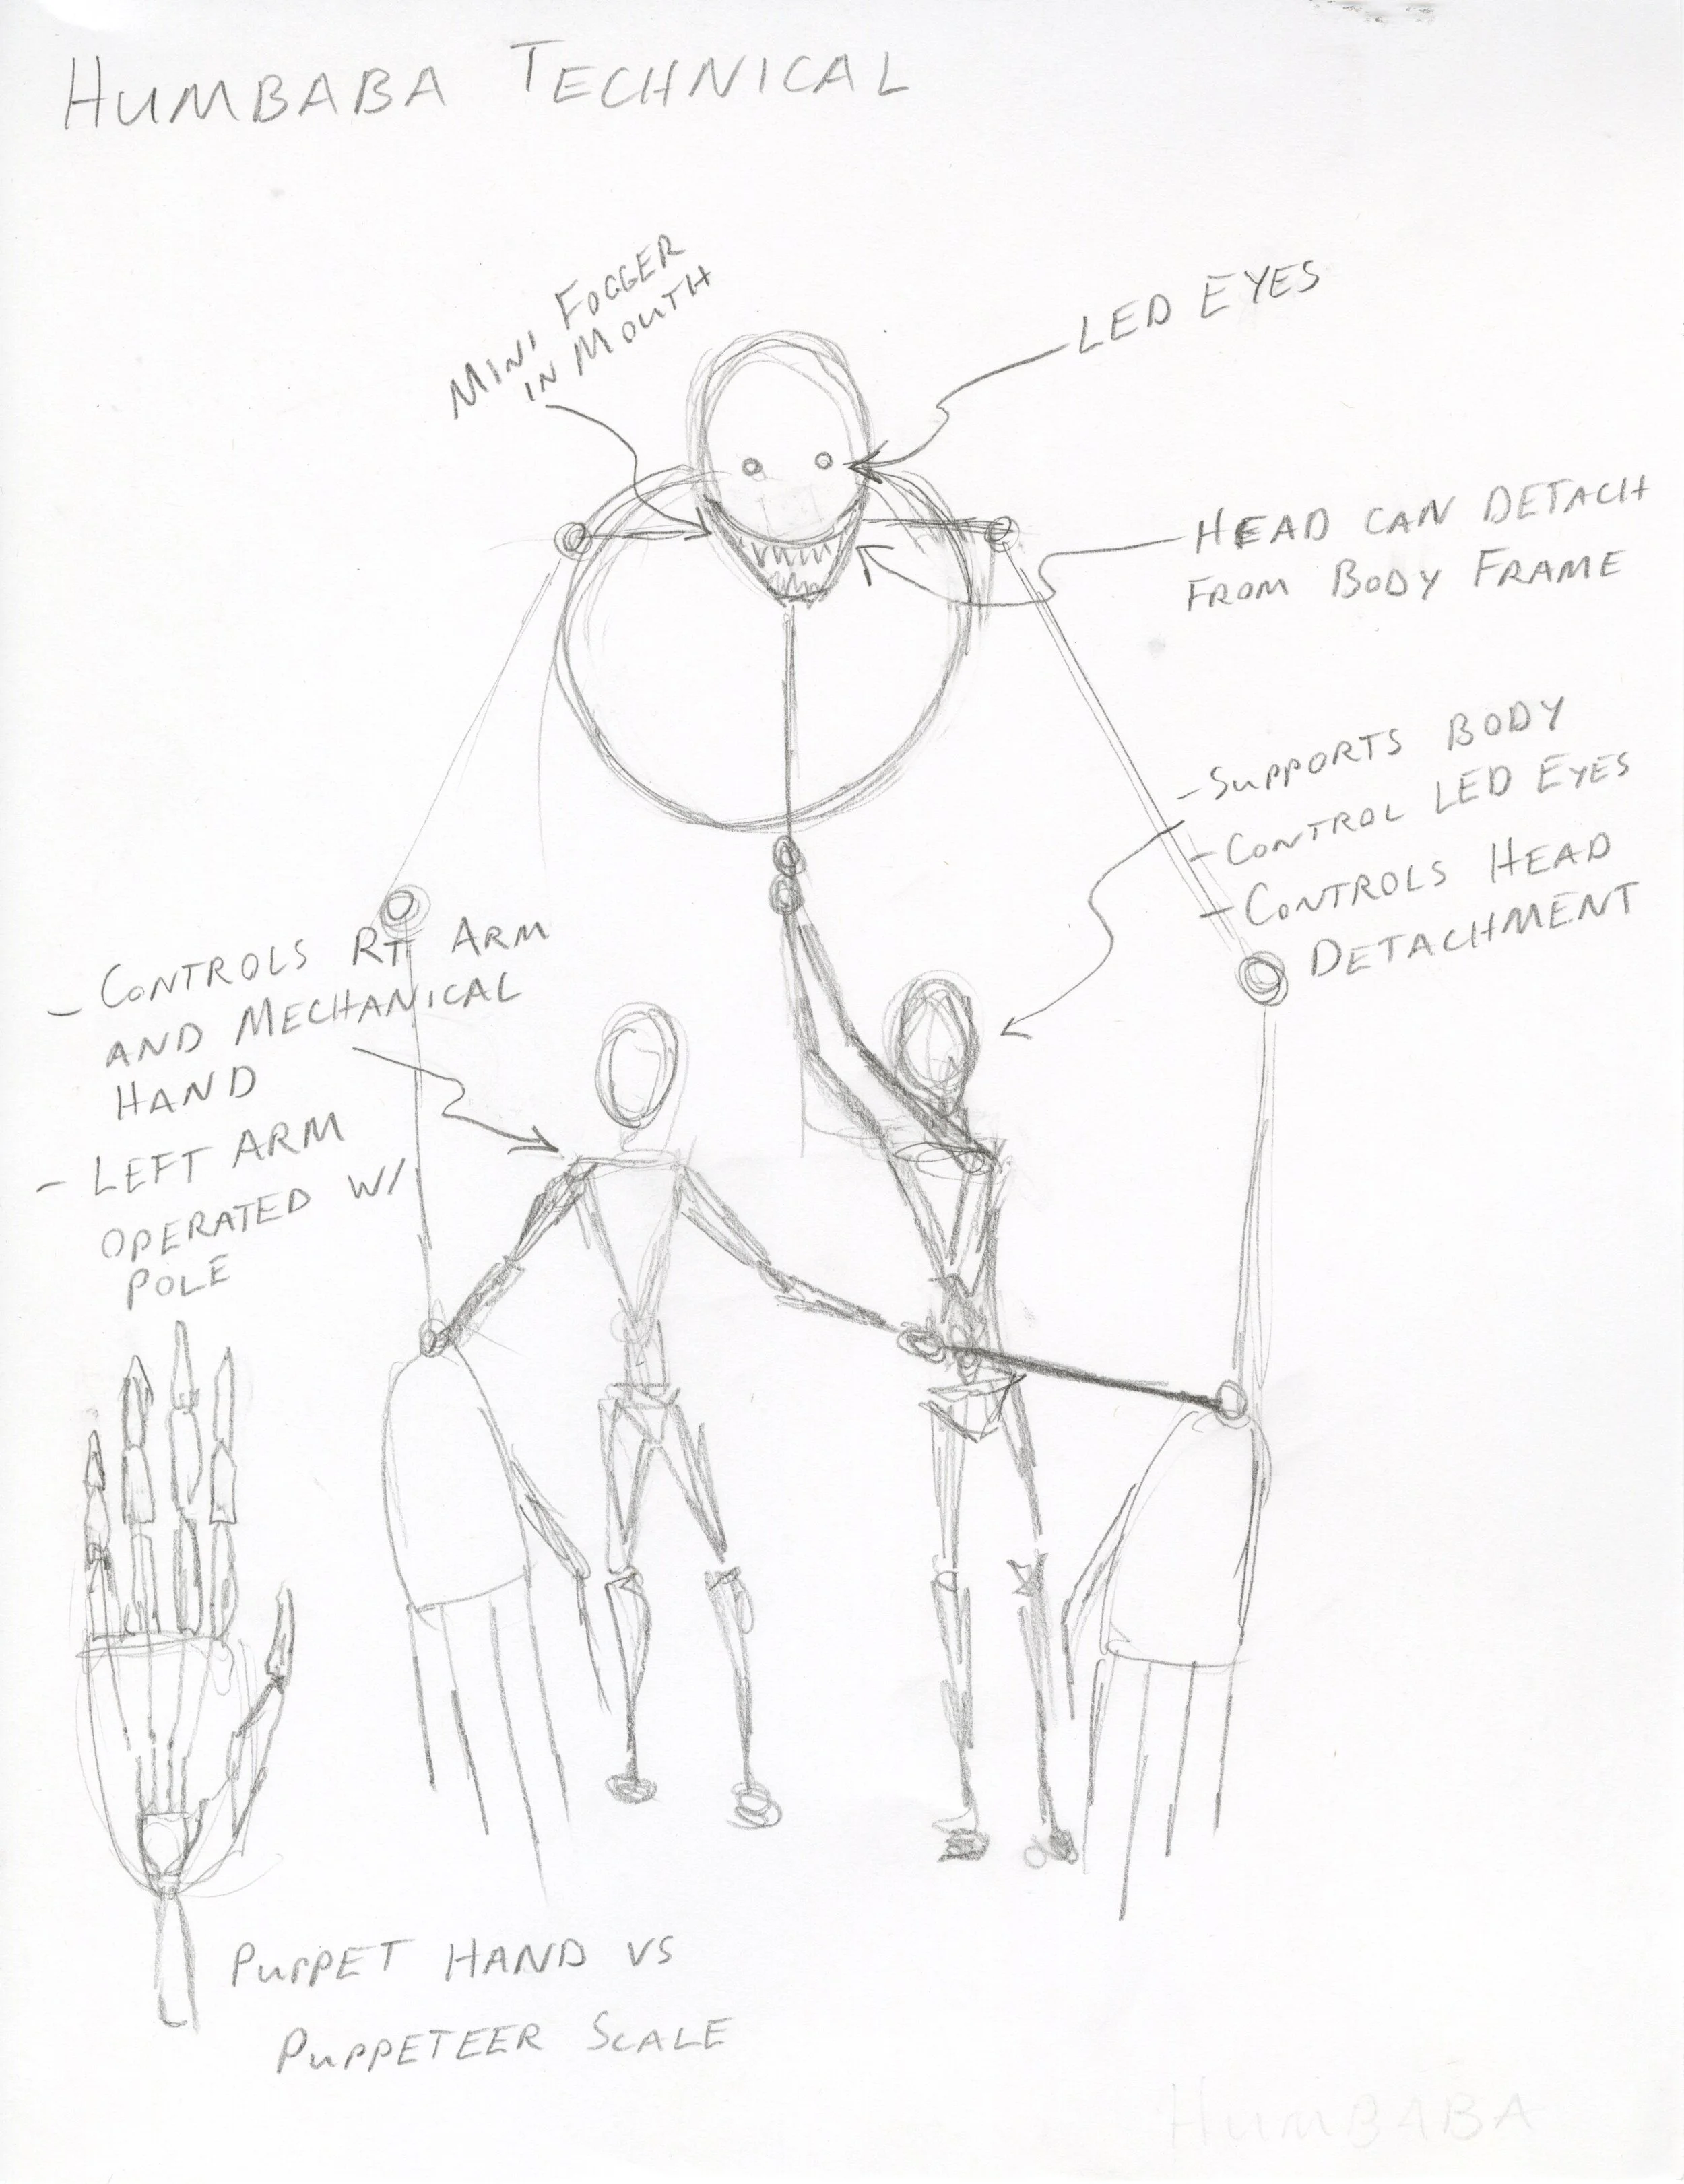 HUMBABA TECHNICAL
MINI FOGGER
IN MOUTH
LED EYES
HEAD CAN DETACH
FROM BODY FRAME
- SUPPORTS BODY
- CONTROL LED EYES
- CONTROLS HEAD
DETACHMENT
- CONTROLS RT ARM
AND MECHANICAL
HAND
- LEFT ARM
OPERATED W/
POLE
PUPPET HAND VS
PUPPETEER SCALE
HUMBABA